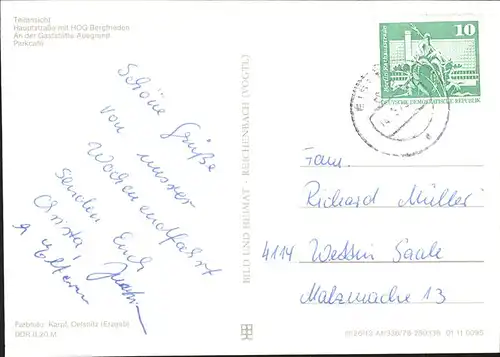 Teilansicht
Hauptstraße mit HOG Bergfrieden
An der Gaststätte Auegrund
Parkcafé
Schöne Grüße
von unserer
Wochenendfahrt
senden Euch
Christa, Joachim
u. Eltern
Farbfoto: Karpf, Oelsnitz (Erzgeb.)
DDR 0,20 M
BILD UND HEIMAT · REICHENBACH (VOGTL)
10
DEUTSCHE DEMOKRATISCHE REPUBLIK
Fam.
Richard Müller
4114 Wettin Saale
Malzmache 13
01 11 0095